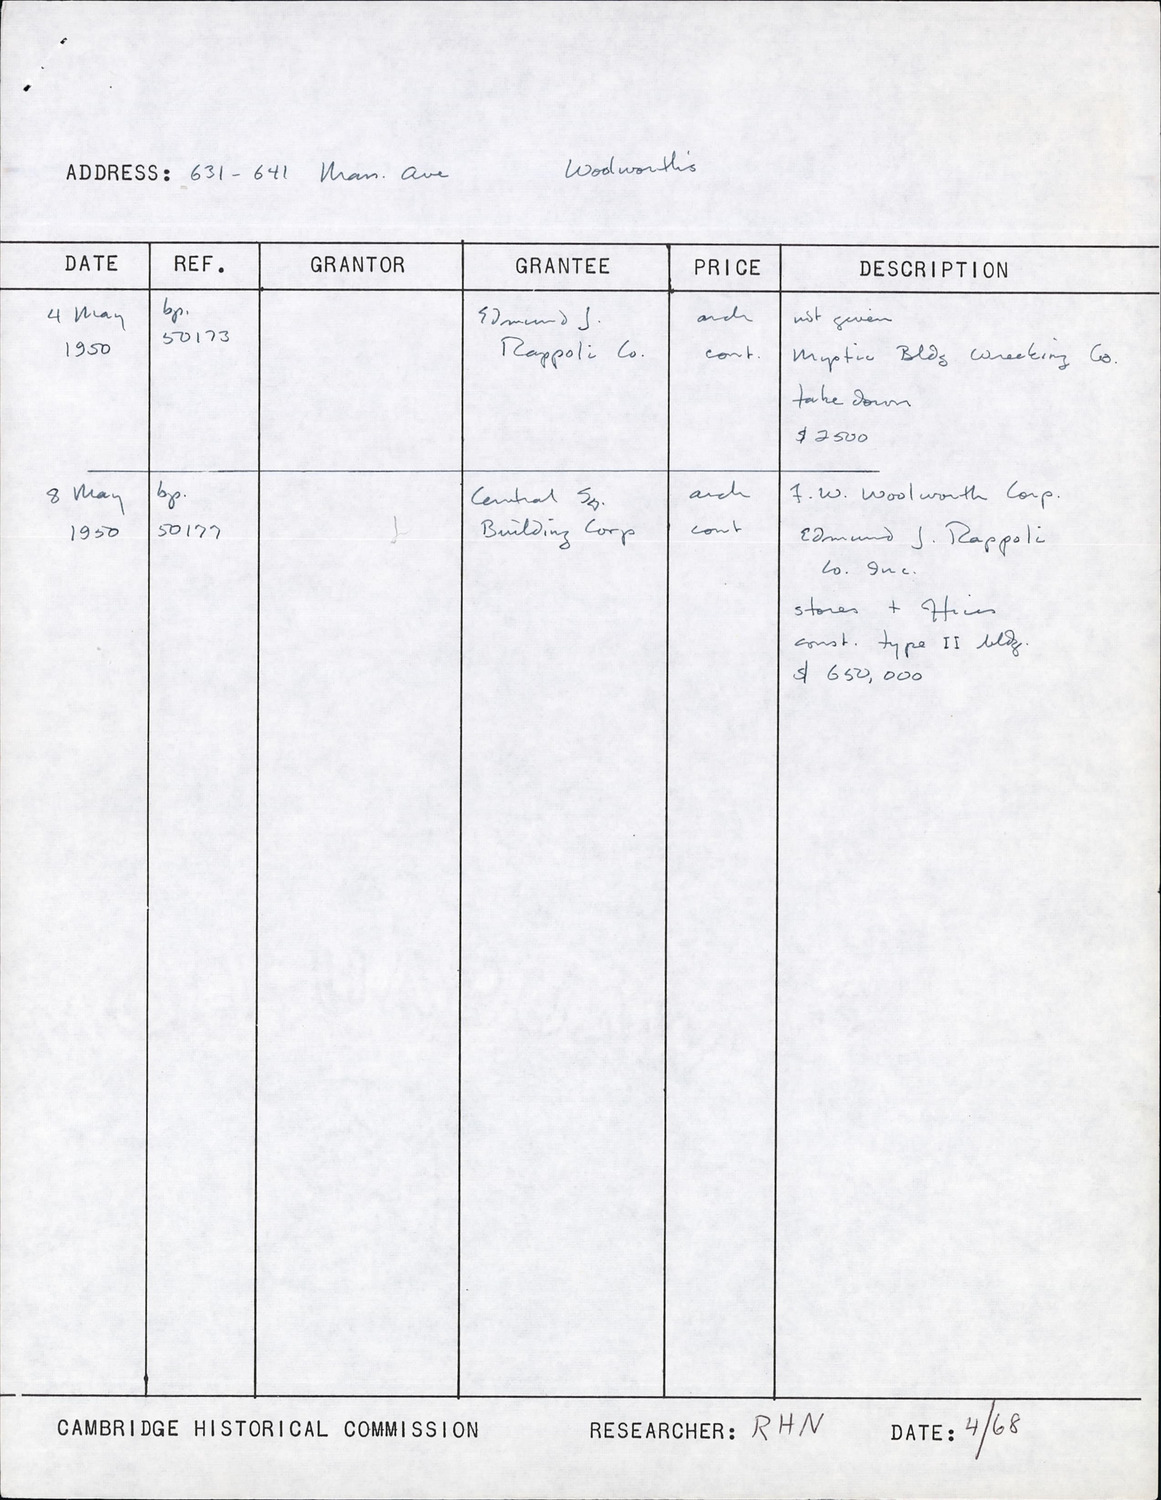 ADDRESS: 631-641 Mass. Ave Woolworth's
DATE REF. GRANTOR GRANTEE PRICE DESCRIPTION
4 May bp. Edmund J. arch not given
1950 50173 Rappoli Co. cont. Mystic Bldg Wrecking Co.
take down
$2500
8 May bp. Central Sq. arch F.W. Woolworth Corp.
1950 50177 Building Corp cont Edmund J. Rappoli
Co. Inc.
stores + offices
const. type II bldg.
$ 650,000
CAMBRIDGE HISTORICAL COMMISSION RESEARCHER: RHN DATE: 4/68